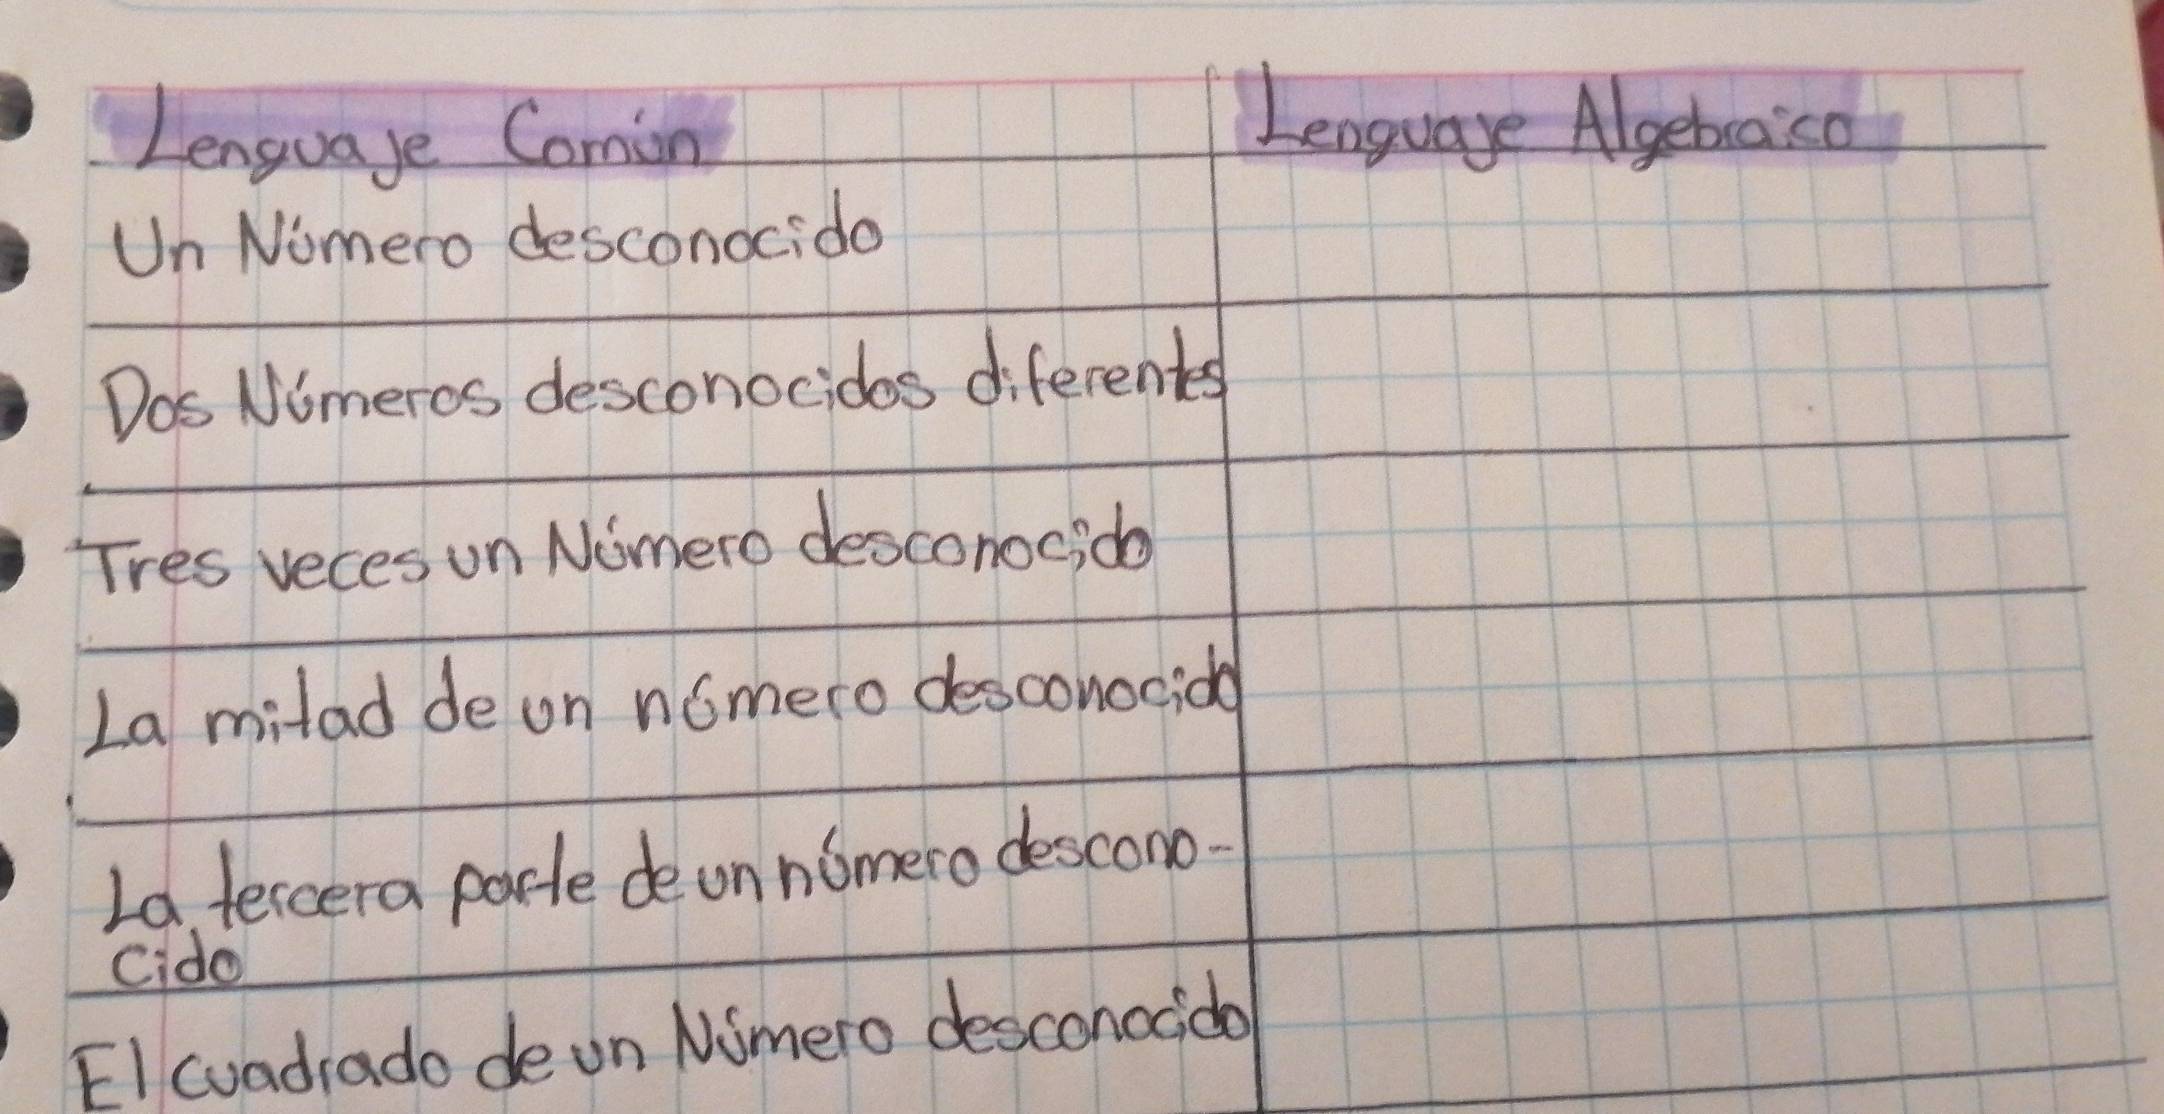 Lenguaje Común
Lenguaje Algebraico
Un Número desconocido
Dos Números desconocidos diferentes
Tres veces un Número desconocido
La mitad de un número desconocido
La tercera parte de un número descono-
cido
El cuadrado de un Número desconocido